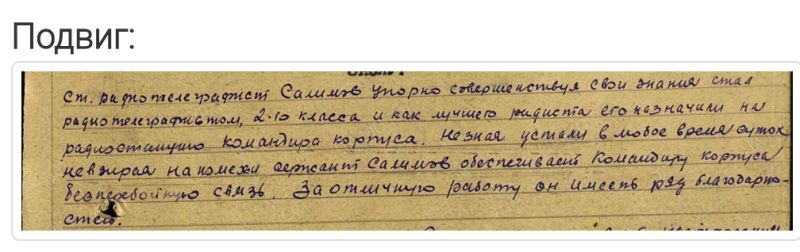 Подвиг:
ст. радиотелеграфист Салимов упорно совершенствуя свои знания стал
радиотелеграфистом, 2-го класса и как лучшего радиста его назначили на
радиостанцию командира корпуса. Незная устали в любое время суток
невзирая на помехи сержант Салимов обеспечивает командиру корпуса
бесперебойную связь. За отличную работу он имеет ряд благодарно-
стей.